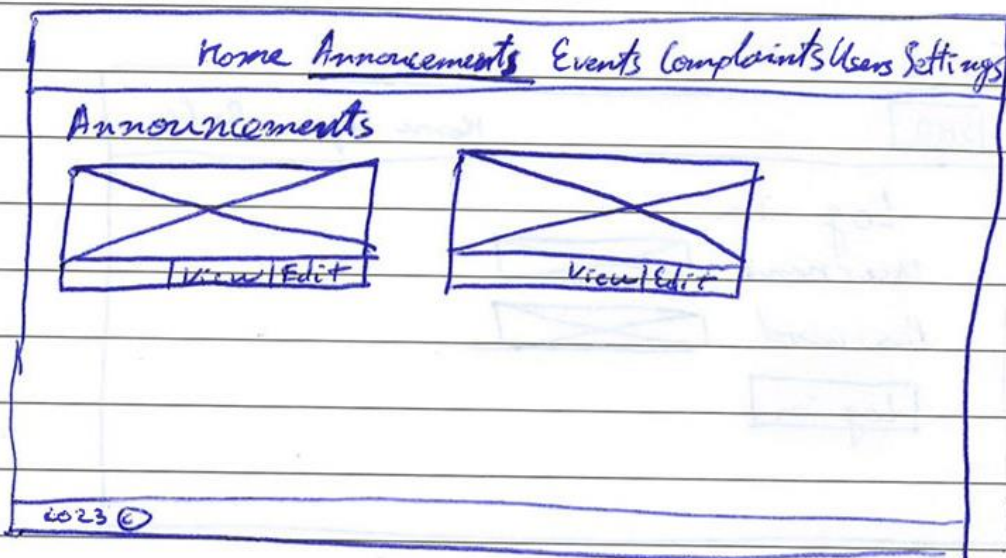 Home Announcements Events Complaints Users Settings
Announcements
View | Edit View | Edit
2023 ©